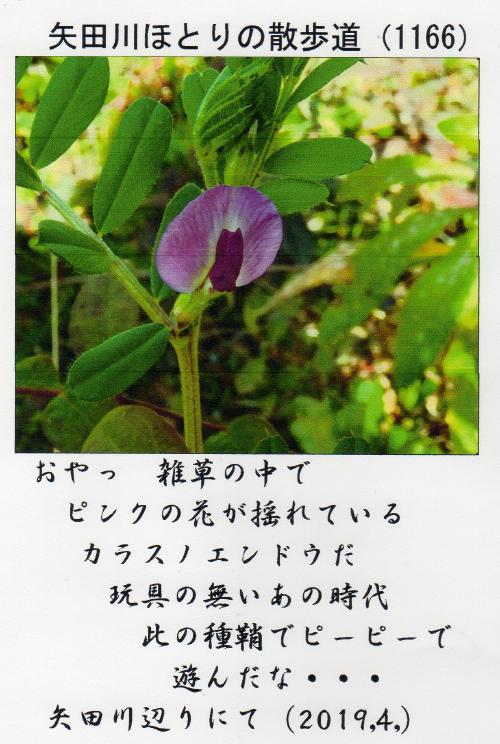 矢田川ほとりの散歩道（1166）
おやっ　雑草の中で
ピンクの花が揺れている
カラスノエンドウだ
玩具の無いあの時代
此の種鞘でピーピーで
遊んだな・・・
矢田川辺りにて（2019,4,）